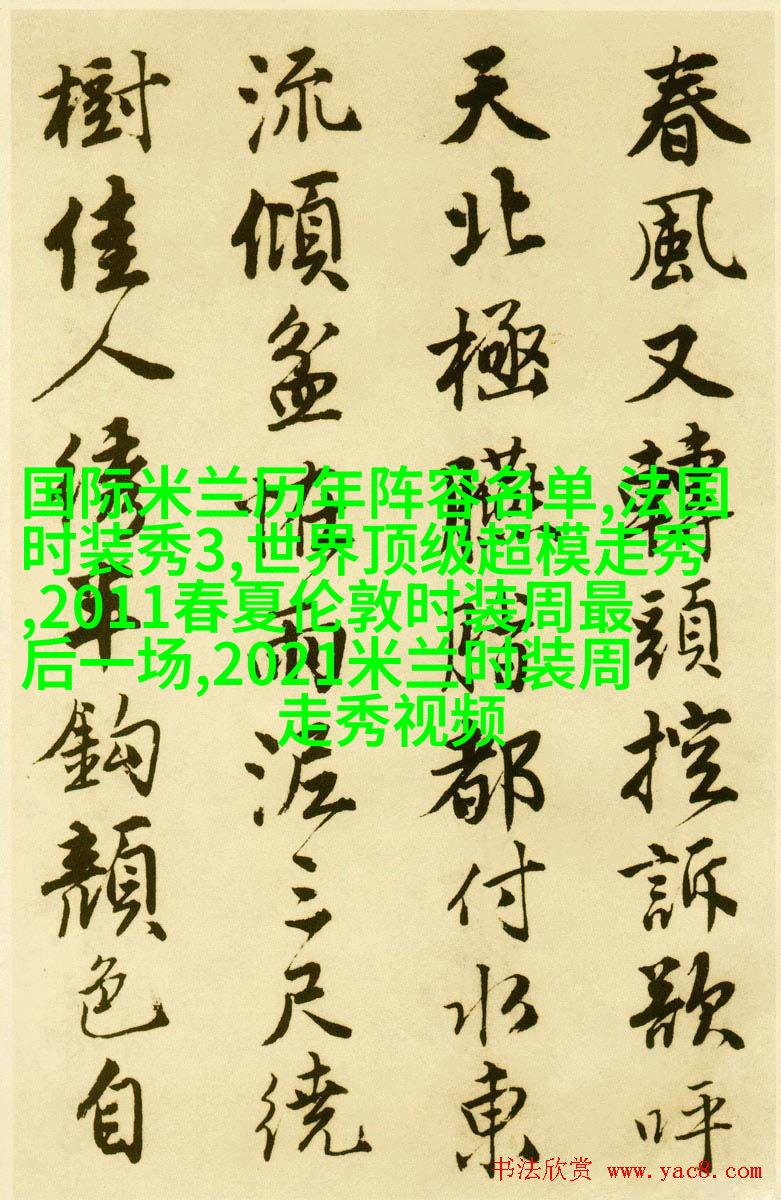 春風又轉頭控訴歌呼
天北極都付水東
流傾盆雨泥三尺繞
樹佳人鈎顏色自
国际米兰历年阵容名单,法国
时装秀3,世界顶级超模走秀
,2011春夏伦敦时装周最
后一场,2021米兰时装周
走秀视频
书法欣赏 www.yac8.com